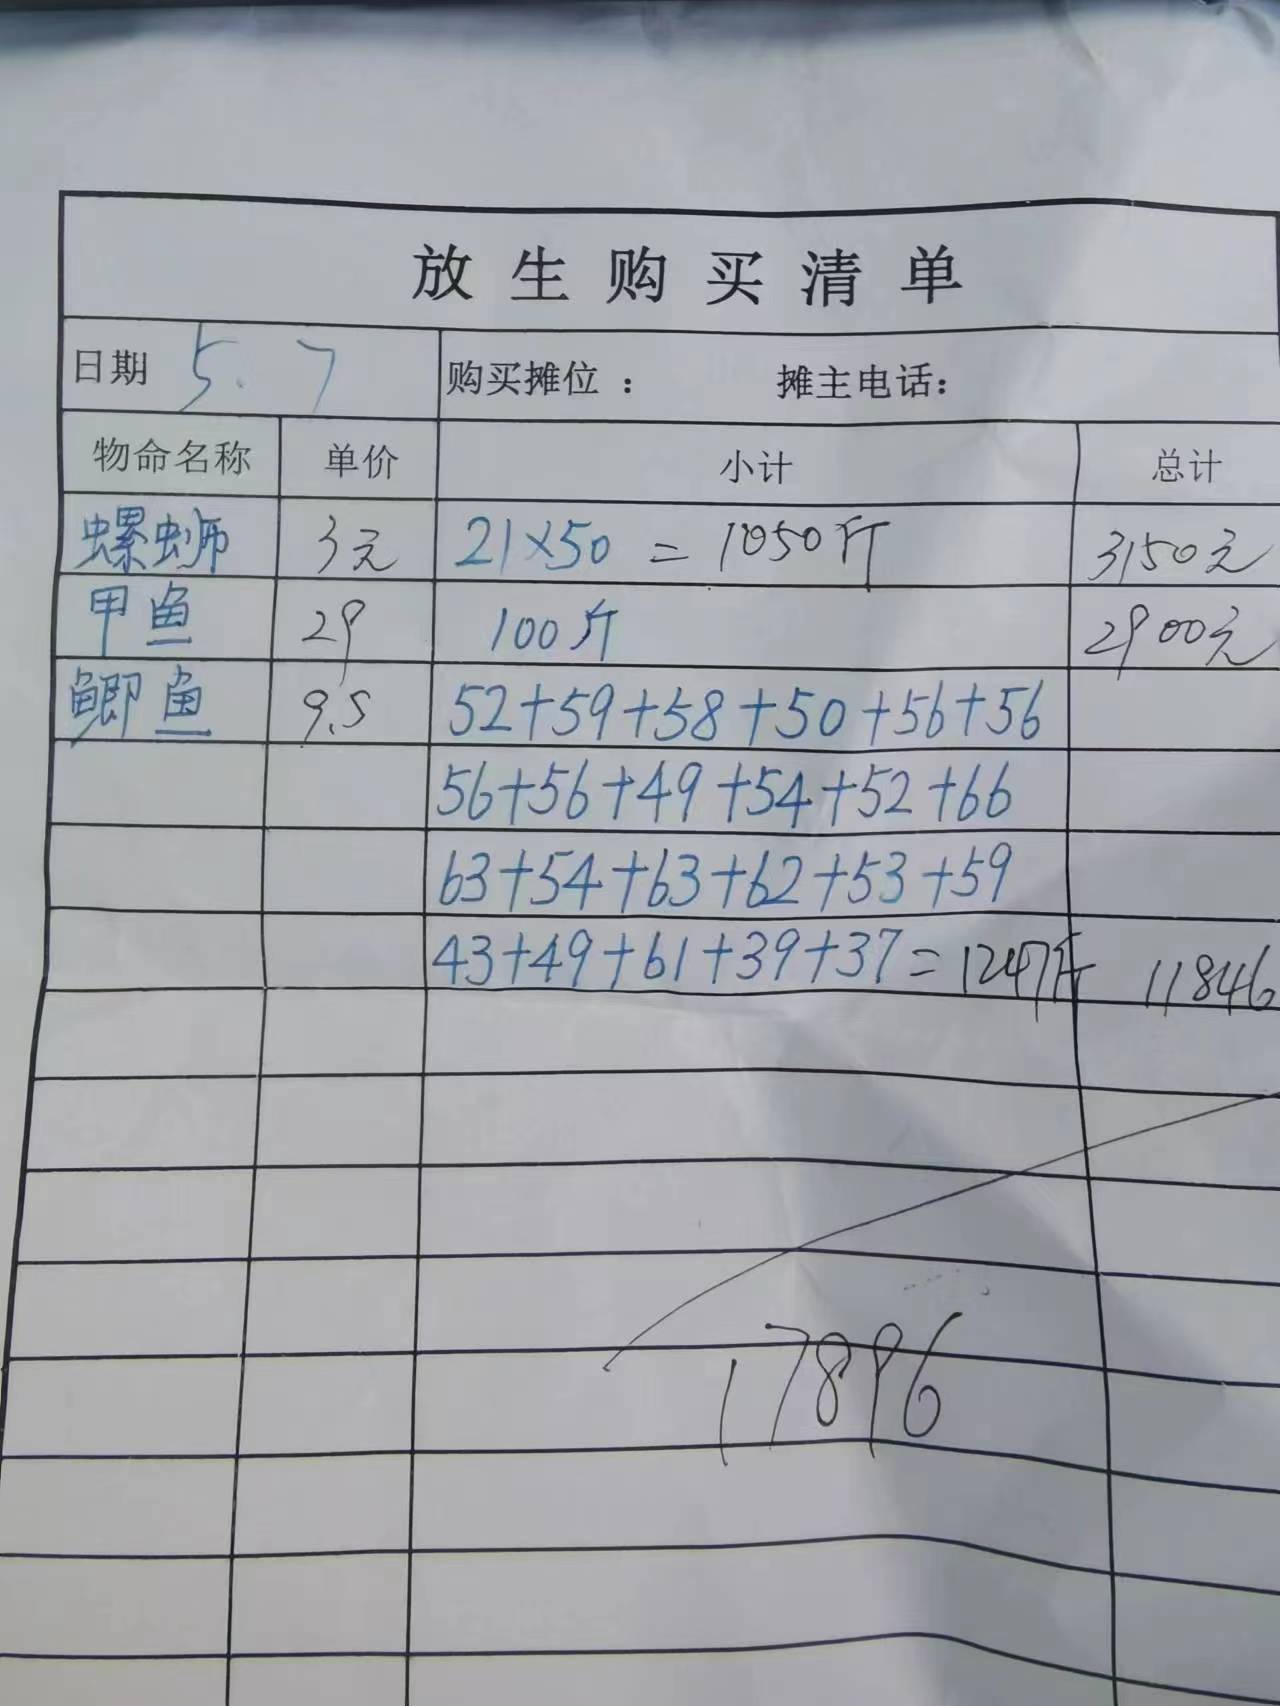 放生购买清单
日期 5.7 购买摊位： 摊主电话：
物命名称 单价 小计 总计
螺蛳 3元 21×50 = 1050斤 3150元
甲鱼 29 100斤 2900元
鲫鱼 9.5 52+59+58+50+56+56
56+56+49+54+52+66
63+54+63+62+53+59
43+49+61+39+37=1247斤 11846
17896